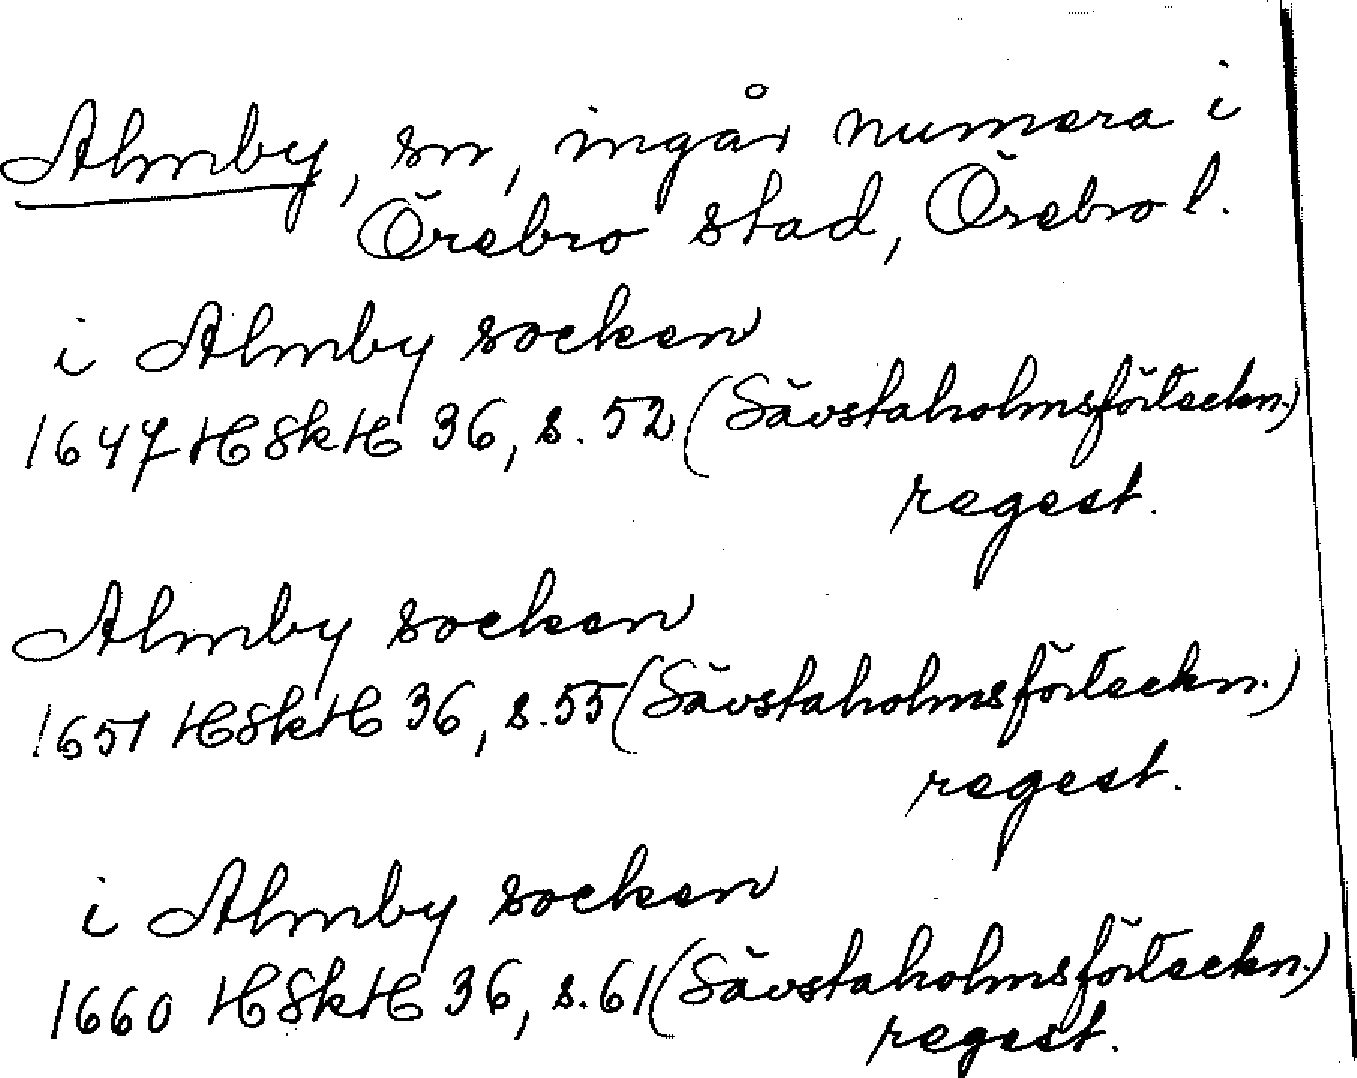 Almby, sn, ingår numera i
Örebro stad, Örebro l.
i Almby socken
1647 HSkH 36, s. 52 (Sävstaholmsförteckn.)
regest.
Almby socken
1651 HSkH 36, s. 55 (Sävstaholmsförteckn.)
regest.
i Almby socken
1660 HSkH 36, s. 61 (Sävstaholmsförteckn.)
regest.